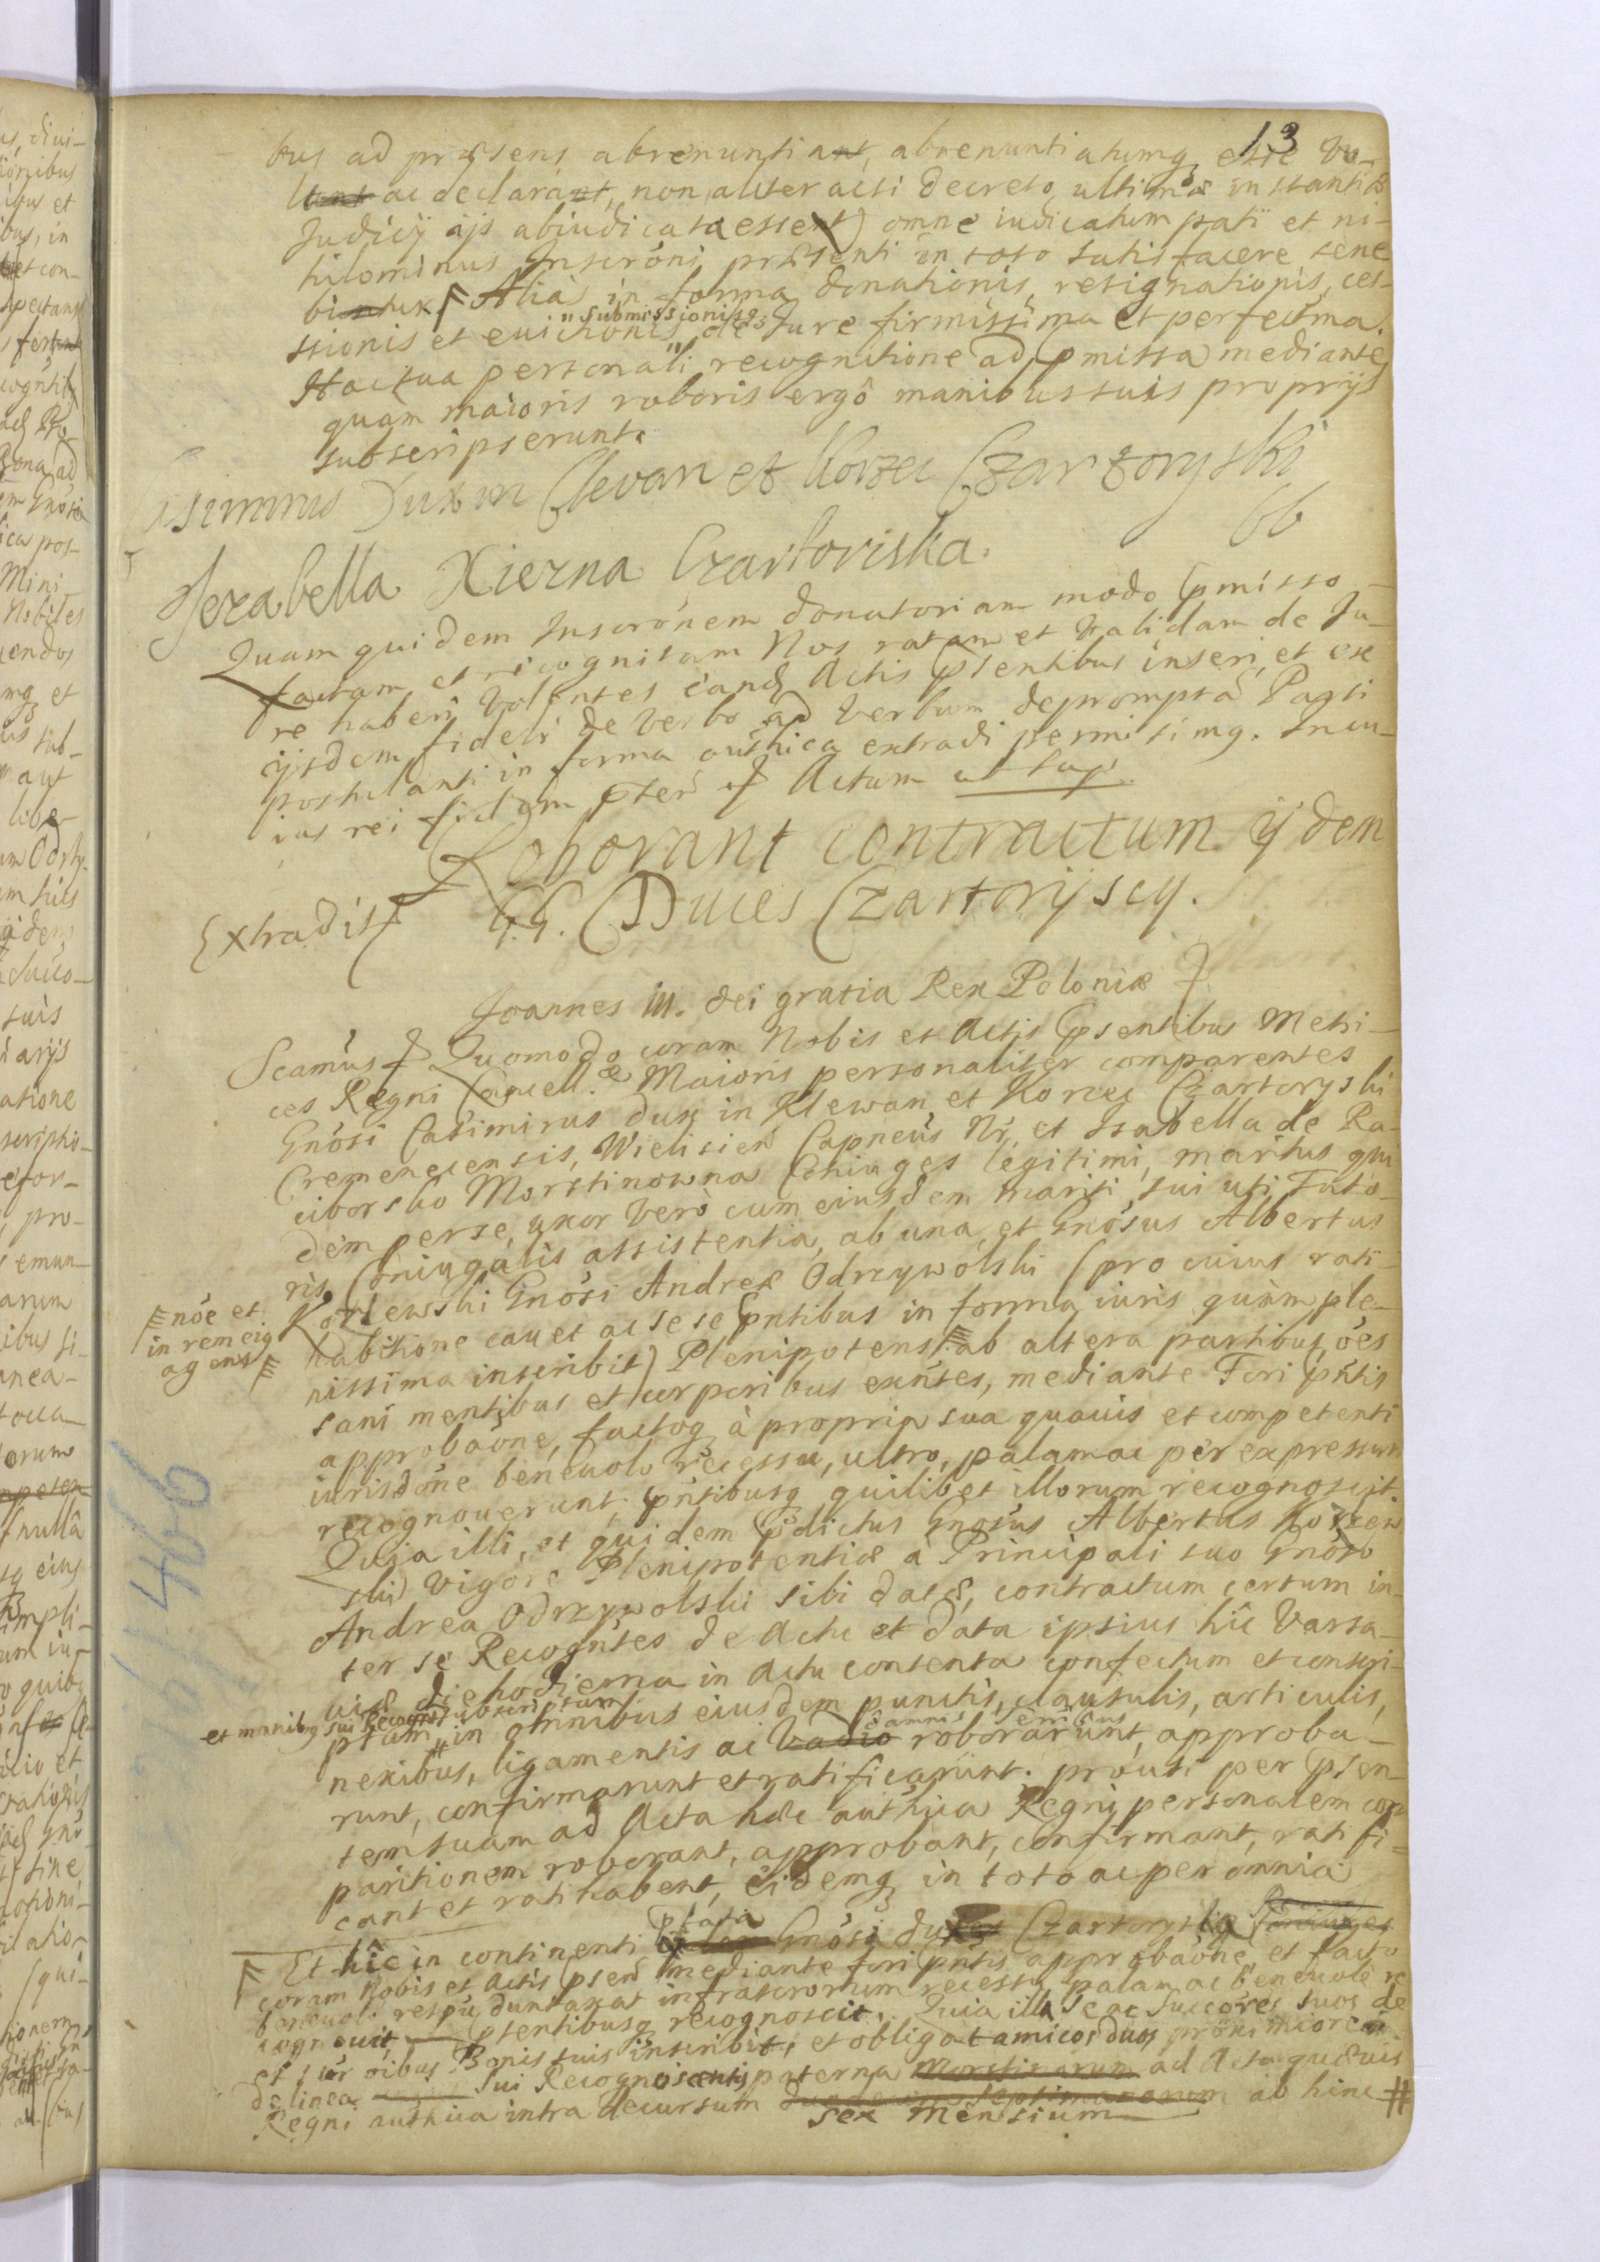 13
bus ad præsens abrenuntiant, abrenuntiatumq esse vo-
lunt ac declarant, non aliter acsi decreto ultimæ instantiæ
Judicÿ ijs abiudicata essent) omne iudicatum pati et ni-
hilominus Inscrōni præsenti in toto satisfacere tene
buntur. Alia in forma donationis, resignationis, ces-
"submissionisq
ssionis et euictionis de Jure firmissima et perfectma.
Hac sua personali recognitione ad pmissa mediante
quam maioris roboris ergô manibus suis proprijs
subscripserunt.
Casimirus Dux in Clevan et Korzec Czartoryski
Jezabella Xiezna Czartoriska.
Quam quidem Inscrōnem donatoriam modo pmisso
factam et recognitam Nos ratam et validam de Ju-
re haberi volentes eand Actis psentibus inseri, et ex
ijsdem fideli de verbo ad verbum deprompta Parti
postulanti in forma authica extradi permisimq. In cu-
ius rei fidem pter Actum ut sup.
Roborant contractum ijdem
Extradit GG. Duces Czartorijscy.
Joannes III. dei gratia Rex Poloniæ
Scamus Quomodo coram Nobis et Actis psentibus Metri-
ces Regni Cancell.æ Maioris personaliter comparentes
Gnōsi Casimirus dux in Klewan et Korzec Czartoryski
Cremenecensis, Wielisien Capneus Nr, et Isabella de Ra-
ciborsko Morstinowna Coniuges legitimi, maritus qui
dem per se, uxor verò cum eiusdem mariti sui uti Tuto-
ris Coniugalis assistentia, ab una, et Gnōsus Albertus
Korzewski Gnōsi Andreæ Odrzywolski (pro cuius rati-
nōe et
in rem eiq
agens
habitione cauet ac sese pntibus in forma iuris quàm ple-
nissima inscribit) Plenipotens ab altera partibus, ōes
sani mentibus et corporibus exntes, mediante Fori pntis
approbāone, factoq à propria sua quauis et competenti
iurisdōne beneuolo recessu, ultro, palam ac per expressum
recognouerunt, pntibusq quilibet illorum recognoscit.
Quia illi, et quidem pdictus Gnōsus Albertus Korzew
ski vigore Plenipotentiæ à Principali suo Gnōso
Andrea Odrzywolski sibi datæ, contractum certum in-
ter se Recogntes de Actu et data ipsius hîc Varsa-
uiæ die hodierna in Actu contenta confectum et conscri-
et manibq sui Recognts subscriptum
ptum in omnibus eiusdem punctis, clausulis, articulis,
damnis
nexibus, ligamentis ac Vadio roborarunt, approba-
runt, confirmarunt et ratificarunt. prouti per psen-
tem suam ad Acta hæc authica Regni personalem com
paritionem roborant, approbant, confirmant, ratifi-
cant et ratihabent, eidemq in toto ac per omnia
pfata
Et hîc in continenti Gnōsi Czartoryska Coniuges
coram Nobis et Actis psen mediante fori pntis approbāone et facto
beneuoli respu duntaxat infrascrorum recessu palam ac beneuolè re
cognouit, psentibusq recognoscit. Quia illa se ac Succōres suos de
et sup ōibus Bonis suis inscribit, et obligat amicos duos proximiores
de linea sui Recognoscentis paterna Morstinorum ad Acta quæuis
Regni authica intra decursum duodecim septimanarum ab hinc #
sex mensium